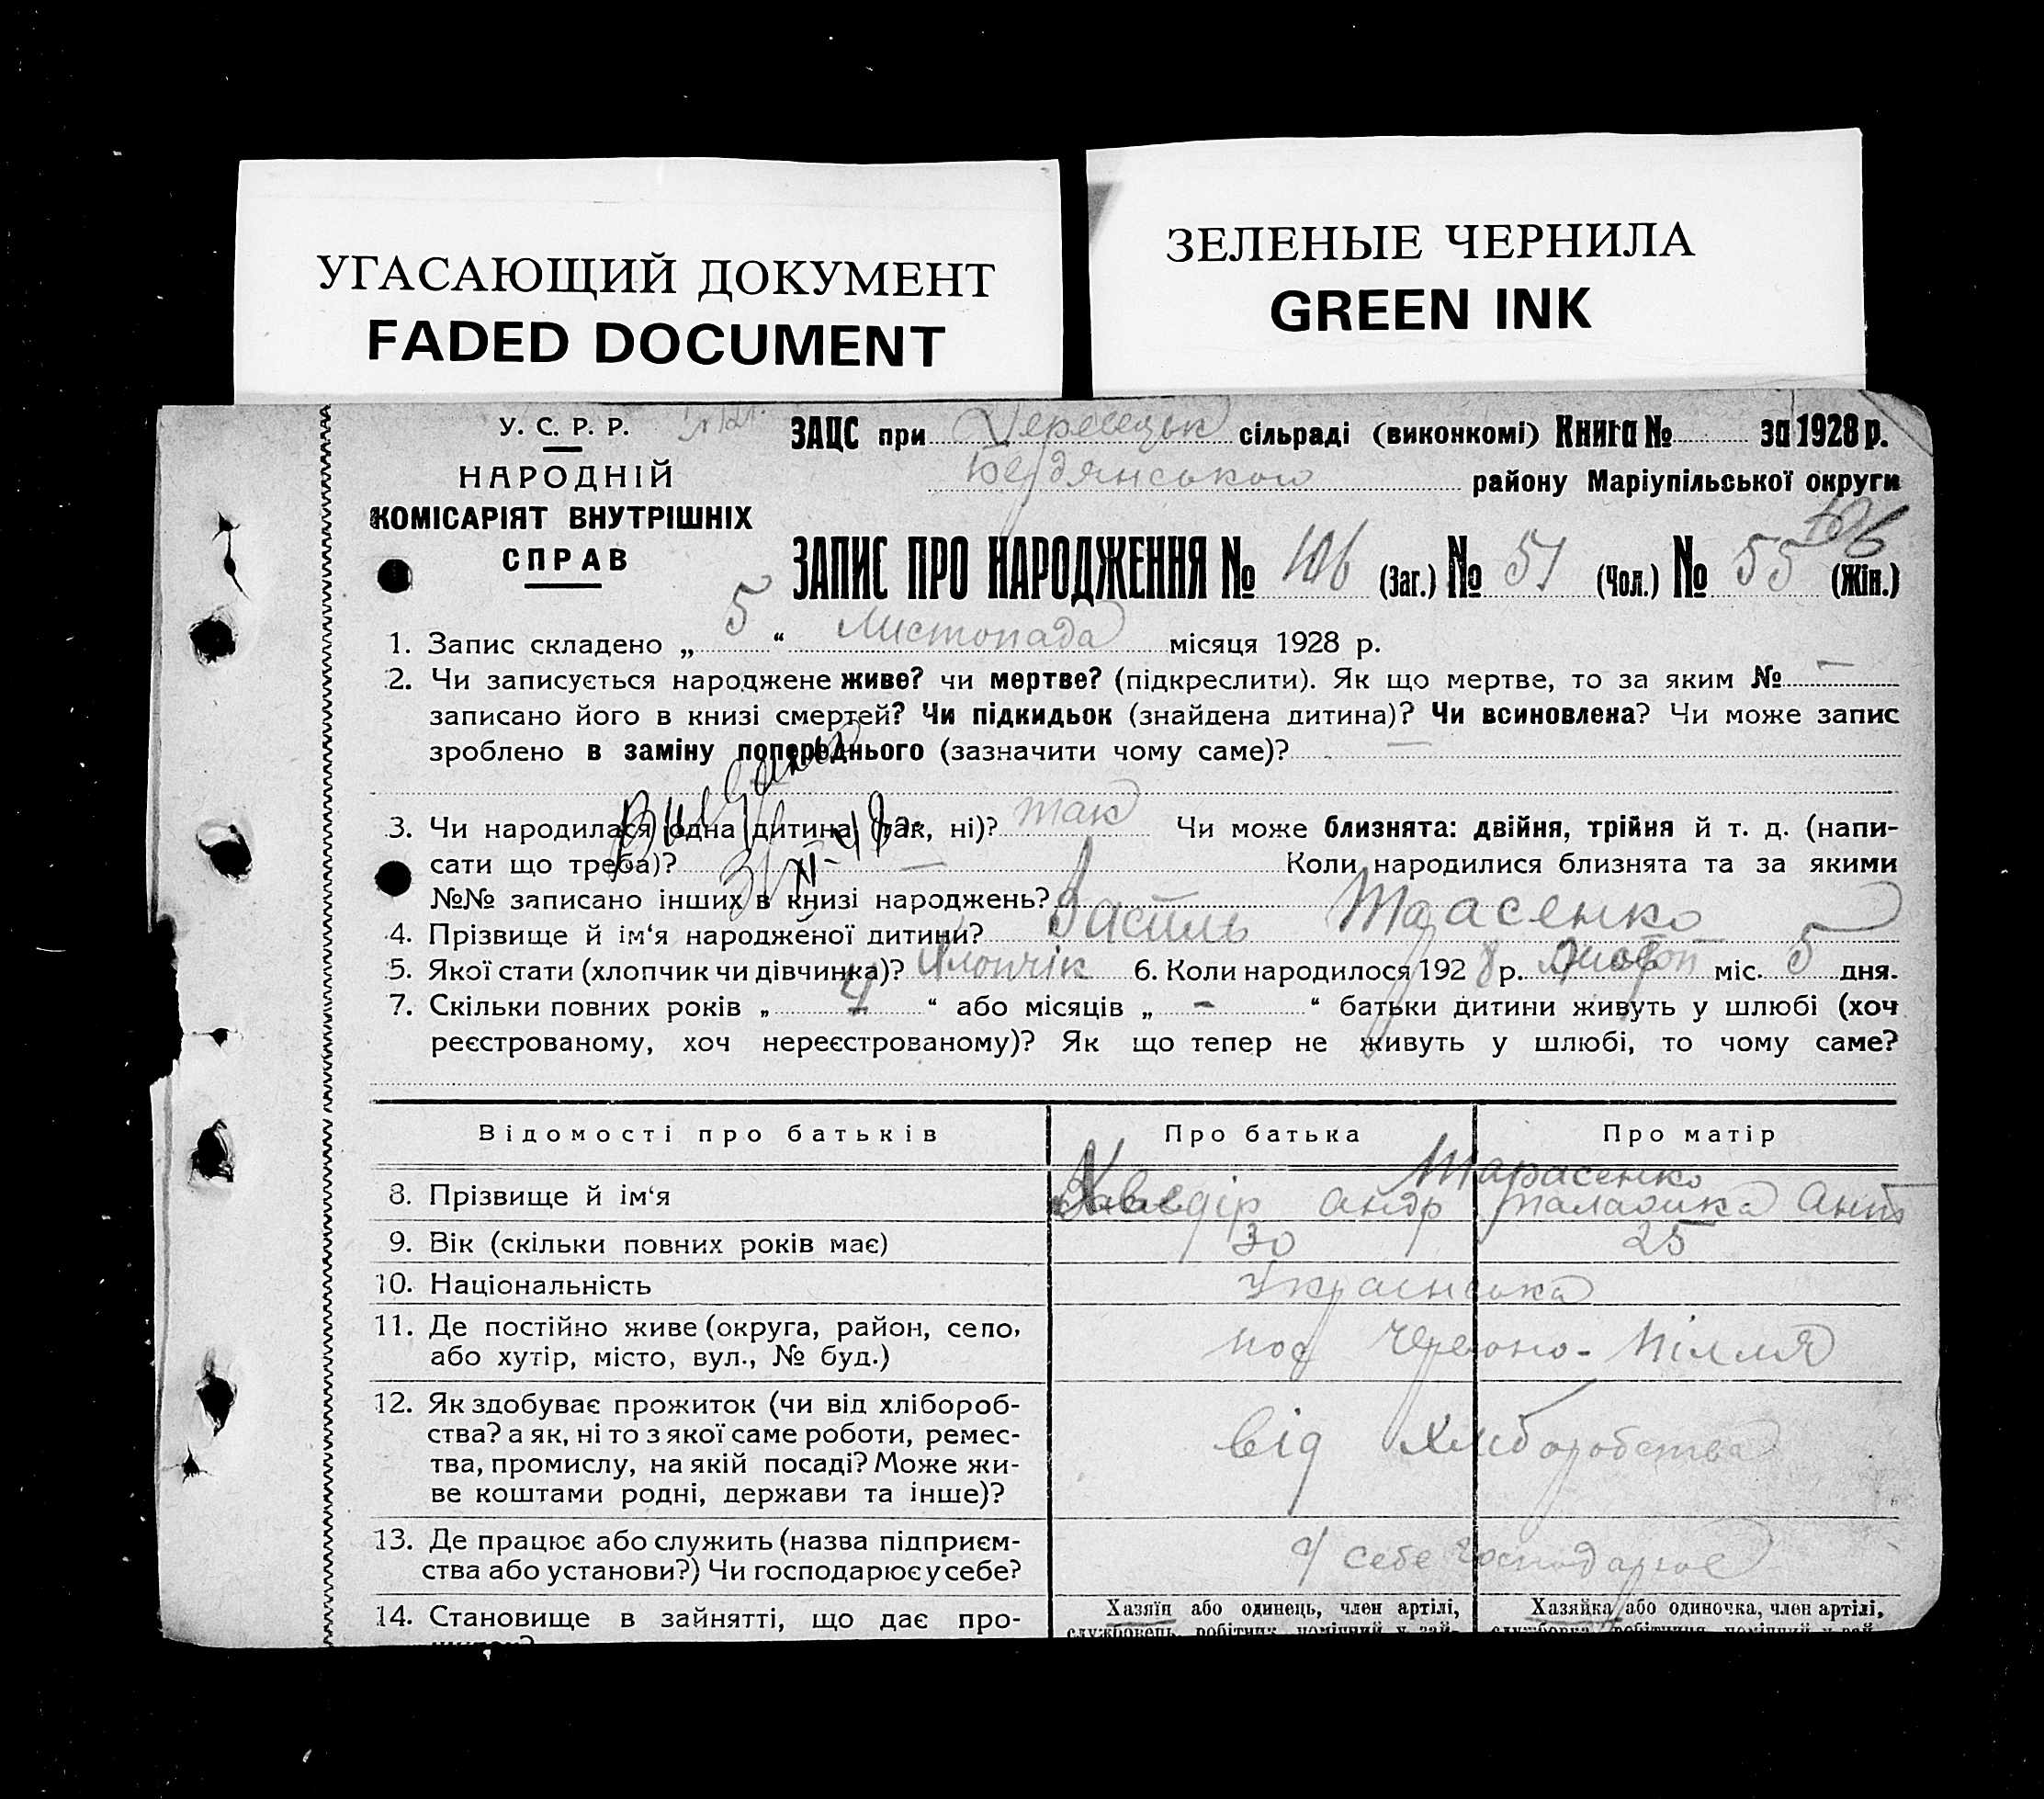 УГАСАЮЩИЙ ДОКУМЕНТ
FADED DOCUMENT
ЗЕЛЕНЫЕ ЧЕРНИЛА
GREEN INK
У. С. Р. Р.
НАРОДНІЙ
КОМІСАРІЯТ ВНУТРІШНІХ
СПРАВ
ЗАЦС при сільраді (виконкомі) Книга № за 1928 р.
Бердянського району Маріупільської округи
106
ЗАПИС ПРО НАРОДЖЕННЯ № 106 (Заг.) № 51 (Чол.) № 55 (Жін.)
1. Запис складено „ 5 “ Листопада місяця 1928 р.
2. Чи записується народжене живе? чи мертве? (підкреслити). Як що мертве, то за яким № —
записано його в книзі смертей? Чи підкидьок (знайдена дитина)? Чи всиновлена? Чи може запис
зроблено в заміну попереднього (зазначити чому саме)? —
3. Чи народилася одна дитина (так, ні)? так Чи може близнята: двійня, трійня й т. д. (напи-
сати що треба)? — Коли народилися близнята та за якими
№№ записано інших в книзі народжень?
4. Прізвище й ім‘я народженої дитини? Василь Тарасенко
5. Якої стати (хлопчик чи дівчинка)? Хлопчік 6. Коли народилося 192 8 р. Листоп міс. 5 дня.
7. Скільки повних років „ 4 “ або місяців „ - “ батьки дитини живуть у шлюбі (хоч
реєстрованому, хоч нереєстрованому)? Як що тепер не живуть у шлюбі, то чому саме?
Відомості про батьків Про батька Про матір
Тарасенко
8. Прізвище й ім‘я Хведір Андр
9. Вік (скільки повних років має) 30 25
10. Національність Украінська
11. Де постійно живе (округа, район, село,
або хутір, місто, вул., № буд.) пос Червоно-Пілля
12. Як здобуває прожиток (чи від хлібороб-
ства? а як, ні то з якої саме роботи, ремес-
тва, промислу, на якій посаді? Може жи-
ве коштами родні, держави та інше)? від Хліборобства
13. Де працює або служить (назва підприєм-
ства або установи?) Чи господарює у себе? у себе господарює
14. Становище в зайнятті, що дає про-
Хазяїн або одинець, член артілі,
Хазяйка або одиночка, член артілі,